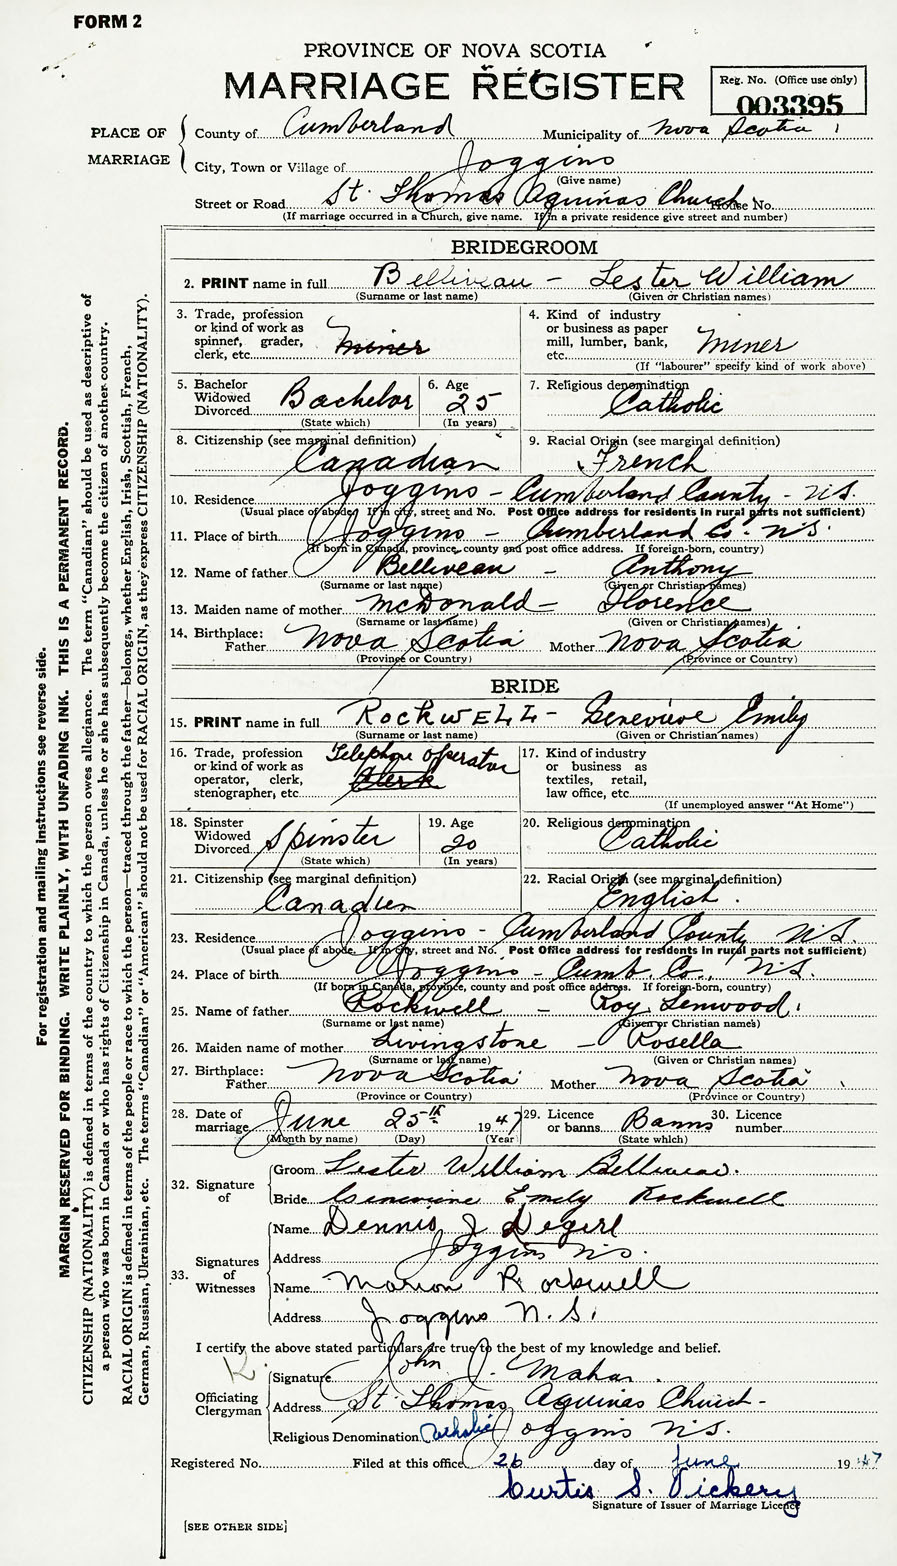 FORM 2
PROVINCE OF NOVA SCOTIA
MARRIAGE REGISTER
Reg. No. (Office use only)
003395
PLACE OF MARRIAGE
County of Cumberland Municipality of Nova Scotia
City, Town or Village of Joggins
(Give name)
Street or Road St. Thomas Aquinas Church House No.
(If marriage occurred in a Church, give name. If in a private residence give street and number)
BRIDEGROOM
2. PRINT name in full Belliveau - Lester William
(Surname or last name) (Given or Christian names)
3. Trade, profession or kind of work as spinner, grader, clerk, etc. miner
4. Kind of industry or business as paper mill, lumber, bank, etc. miner
(If "labourer" specify kind of work above)
5. Bachelor Widowed Divorced Bachelor
(State which)
6. Age 25
(In years)
7. Religious denomination Catholic
8. Citizenship (see marginal definition) Canadian
9. Racial Origin (see marginal definition) French
10. Residence Joggins - Cumberland County - N.S.
(Usual place of abode. If in city, street and No. Post Office address for residents in rural parts not sufficient)
11. Place of birth Joggins - Cumberland Co. N.S.
(If born in Canada, province, county and post office address. If foreign-born, country)
12. Name of father Belliveau - Anthony
(Surname or last name) (Given or Christian names)
13. Maiden name of mother McDonald - Florence
(Surname or last name) (Given or Christian names)
14. Birthplace: Father Nova Scotia Mother Nova Scotia
(Province or Country) (Province or Country)
BRIDE
15. PRINT name in full RockwELL - Genevieve Emily
(Surname or last name) (Given or Christian names)
16. Trade, profession or kind of work as operator, clerk, stenographer, etc. Telephone operator Clerk
17. Kind of industry or business as textiles, retail, law office, etc.
(If unemployed answer "At Home")
18. Spinster Widowed Divorced Spinster
(State which)
19. Age 20
(In years)
20. Religious denomination Catholic
21. Citizenship (see marginal definition) Canadien
22. Racial Origin (see marginal definition) English
23. Residence Joggins - Cumberland County N.S.
(Usual place of abode. If in city, street and No. Post Office address for residents in rural parts not sufficient)
24. Place of birth Joggins - Cumb. Co., N.S.
(If born in Canada, province, county and post office address. If foreign-born, country)
25. Name of father Rockwell - Roy Lenwood
(Surname or last name) (Given or Christian names)
26. Maiden name of mother Livingstone - Rosella
(Surname or last name) (Given or Christian names)
27. Birthplace: Father Nova Scotia Mother Nova Scotia
(Province or Country) (Province or Country)
28. Date of marriage June 25th 1947
(Month by name) (Day) (Year)
29. Licence or banns Banns
(State which)
30. Licence number
32. Signature of
Groom Lester William Belliveau.
Bride Genevieve Emily Rockwell
33. Signatures of Witnesses
Name Dennis J
Address Joggins N.S.
Name Marion Rockwell
Address Joggins N.S.
I certify the above stated particulars are true to the best of my knowledge and belief.
Officiating Clergyman
Signature John J. Mahar.
Address St Thomas Aquinas Church -
Religious Denomination Catholic Joggins N.S.
Registered No. Filed at this office 26 day of June 1947
Curtis S. Vickery
Signature of Issuer of Marriage Licence
[SEE OTHER SIDE]
For registration and mailing instructions see reverse side.
MARGIN RESERVED FOR BINDING. WRITE PLAINLY, WITH UNFADING INK. THIS IS A PERMANENT RECORD.
CITIZENSHIP (NATIONALITY) is defined in terms of the country to which the person owes allegiance. The term "Canadian" should be used as descriptive of
a person who was born in Canada or who has rights of Citizenship in Canada, unless he or she has subsequently become the citizen of another country.
RACIAL ORIGIN is defined in terms of the people or race to which the person—traced through the father—belongs, whether English, Irish, Scottish, French,
German, Russian, Ukrainian, etc. The terms "Canadian" or "American" should not be used for RACIAL ORIGIN, as they express CITIZENSHIP (NATIONALITY).